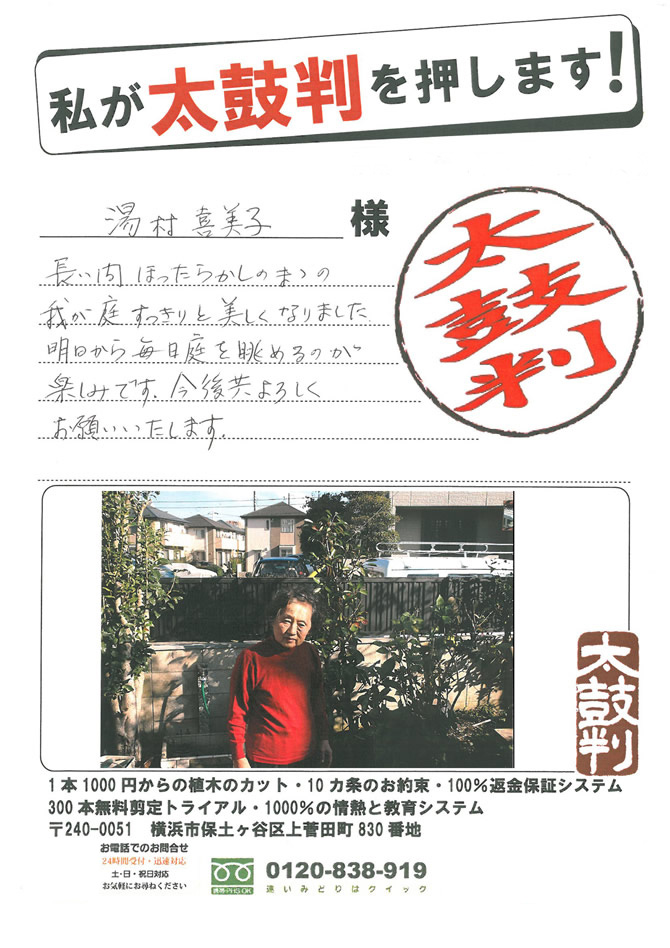 私が太鼓判を押します!
湯村喜美子 様
長い間ほったらかしのまゝの
我が庭すっきりと美しくなりました
明日から毎日庭を眺めるのが
楽しみです。今後共よろしく
お願いいたします。
太鼓判
太鼓判
1本1000円からの植木のカット・10カ条のお約束・100%返金保証システム
300本無料剪定トライアル・1000%の情熱と教育システム
〒240-0051 横浜市保土ヶ谷区上菅田町830番地
お電話でのお問合せ
24時間受付・迅速対応
土・日・祝日対応
お気軽にお尋ねください
携帯・PHS OK
0120-838-919
速いみどりはクイック